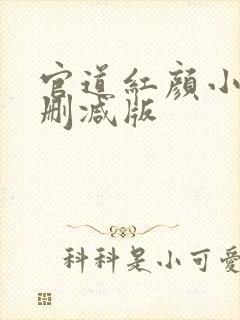 官道紅顔小
刪減版
科科是小可愛